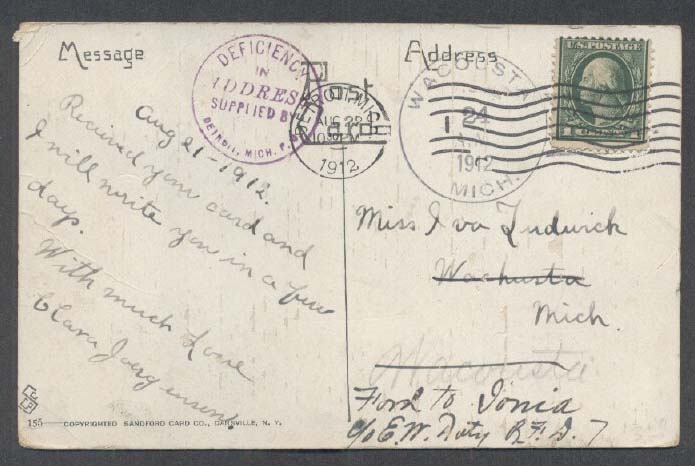 Message
Address
Post
Card
DEFICIENCY
IN
ADDRESS
SUPPLIED BY
DETROIT, MICH. P.O.
DETROIT, MICH.
AUG 22
1912
WACOUSTA
24
1912
MICH.
U.S. POSTAGE
1 CENT 1
Aug 21-1912.
Recieved your card and
I will write you in a few
days.
With much Love
Clara Joergenson.
Miss Iva Ludwick
Wachusta
Mich.
Wacousta
Ford to Ionia
c/o E.W. Doty R.F.D. 7
155 COPYRIGHTED SANDFORD CARD CO., DANSVILLE, N. Y.